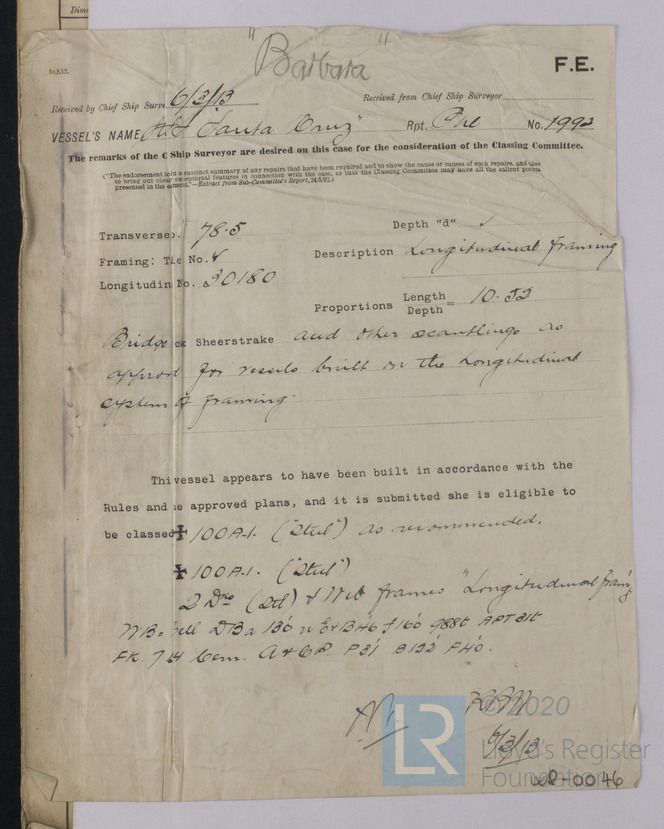 Dime
"Barbara"
F.E.
Received by Chief Ship Surve 6/3/13 Received from Chief Ship Surveyor
VESSEL'S NAME "Santa Cruz" Rpt. Phl No. 1992
The remarks of the C Ship Surveyor are desired on this case for the consideration of the Classing Committee.
("The endorsement a succinct summary of any repairs that have been required and to show the cause or causes of such repairs, and also
to bring out exceptional features in connection with the case, so that the Classing Committee may have all the salient points
presented in the "—Extract from Sub-Committee's Report,
Depth "d" ✓
Transverse 78.5
Description Longitudinal Framing
Framing: No.
Longitudin No. 30180
Proportions Length
Depth = 10.52
Bridge ck Sheerstrake and other scantlings as
approd for vessels built on the Longitudinal
system of framing.
Thi vessel appears to have been built in accordance with the
Rules and e approved plans, and it is submitted she is eligible to
be classed ✠ 100A.1. ("Stul") as recommended.
✠ 100A.1. ("Stul")
2 Dks (Stl) & Web frames "Longitudinal Framg
WB= Cell DBa 130' u E&B 46' f 160' 988t APT 31t
FK. 7 BH Cem. P31' B122' F40'.
6/3/13
© 2020
LR Lloyd's Register
Foundation
-0046